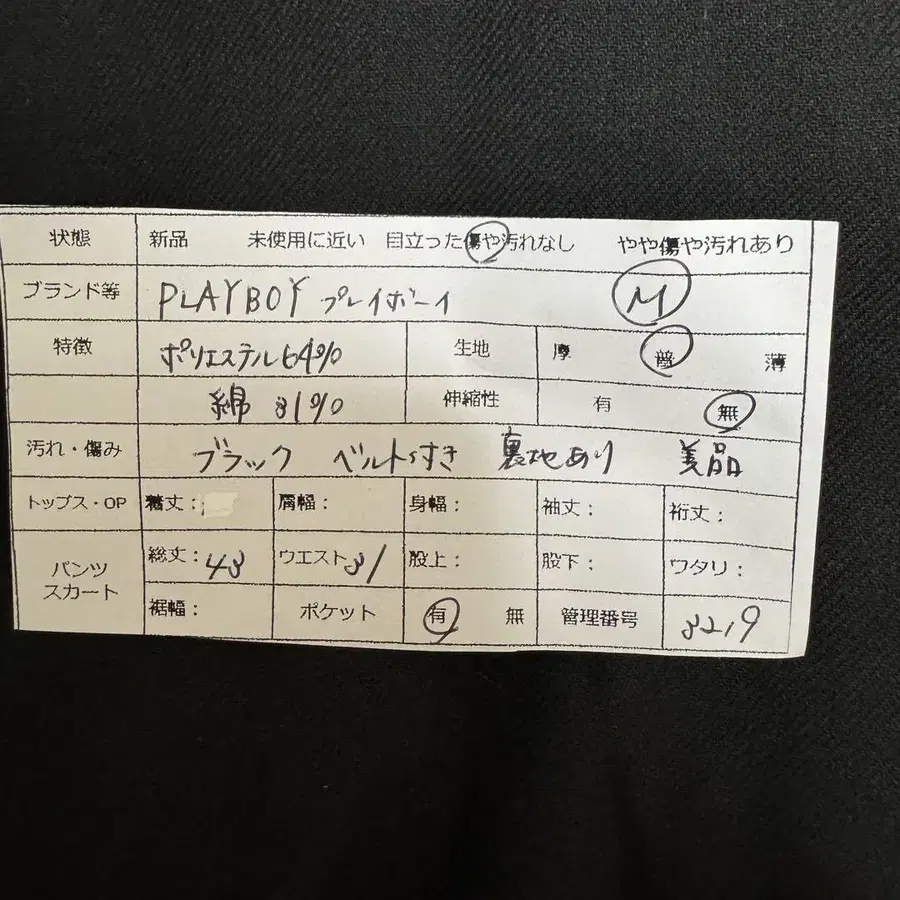 状態 新品 未使用に近い 目立った傷や汚れなし やや傷や汚れあり
ブランド等 PLAYBOY プレイボーイ M
特徴 ポリエステル64% 生地 厚 普 薄
綿 31% 伸縮性 有 無
汚れ・傷み ブラック ベルト付き 裏地あり 美品
トップス・OP 着丈: 肩幅: 身幅: 袖丈: 裄丈:
パンツ スカート 総丈:43 ウエスト31 股上: 股下: ワタリ:
裾幅: ポケット 有 無 管理番号 3219